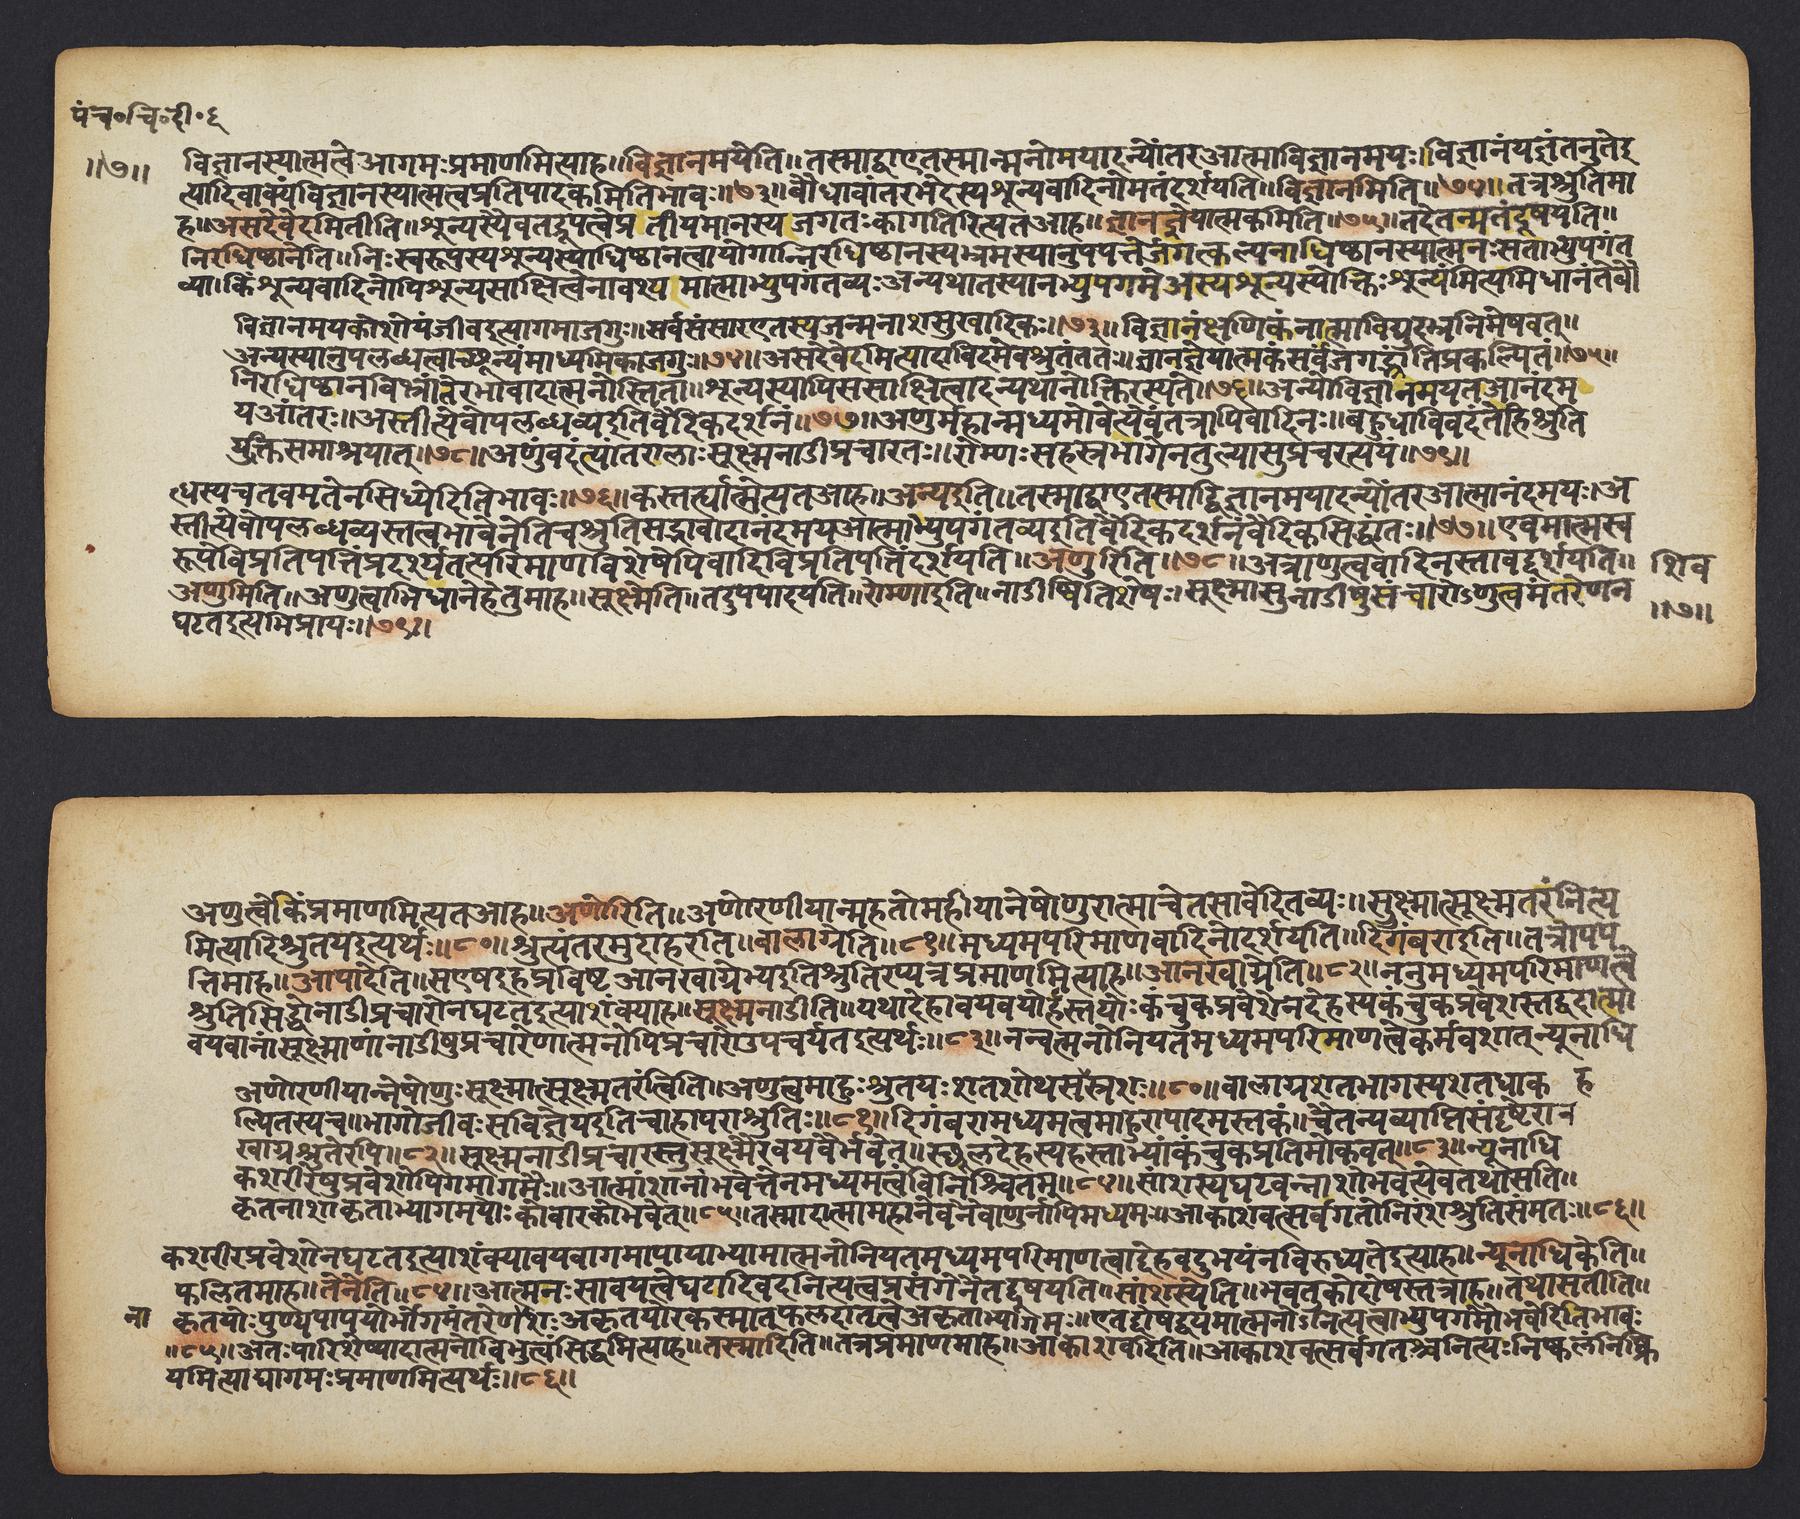 पंच०चि०दी०६
॥७॥
विज्ञानस्यात्मत्वेआगमःप्रमाणमित्याह॥विज्ञानमयेति॥तस्माद्वाएतस्मान्मनोमयादन्योंतरआत्माविज्ञानमयः।विज्ञानंयज्ञंतनुतेइ
त्यादिवाक्यंविज्ञानस्यात्मत्वप्रतिपादकमितिभावः॥७३॥बौधावांतरभेदस्यशून्यवादिनोमतंदर्शयति॥विज्ञानमिति॥७४॥तत्रश्रुतिमा
ह॥असदेवेदमितीति॥शून्यस्यैवतद्रूपत्वेप्रतीयमानस्यजगतःकागतिरित्यतआह॥ज्ञानज्ञेयात्मकमिति॥७५॥तदेतन्मतंदूषयति॥
निरधिष्ठानेति॥निःस्वरूपस्यशून्यस्याधिष्ठानत्वायोगान्निरधिष्ठानस्यभ्रमस्यानुपपत्तेर्जगत्कल्पनाधिष्ठानस्यात्मनःसत्ताभ्युपगंत
व्या।किंशून्यवादिनोपिशून्यसाक्षित्वेनावश्यमात्माभ्युपगंतव्यःअन्यथातस्यानभ्युपगमेअस्यशून्यस्योक्तिःशून्यमित्यभिधानंतेबौ
विज्ञानमयकोशोयंजीवइत्यागमाजगुः॥सर्वसंसारएतस्यजन्मनाशसुखादिकः॥७३॥विज्ञानंक्षणिकंनात्माविद्युदभ्रनिमेषवत्॥
अन्यस्यानुपलब्धत्वाच्छून्यंमाध्यमिकाजगुः॥७४॥असदेवेदमित्यादाविदमेवश्रुतंततः॥ज्ञानज्ञेयात्मकंसर्वंजगद्भ्रांतिप्रकल्पितं॥७५॥
निरधिष्ठानविभ्रांतेरभावादात्मनोस्तिता॥शून्यस्यापिससाक्षित्वादन्यथानोक्तिरस्यते॥७६॥अन्योविज्ञानमयतआनंदम
यआंतरः॥अस्तीत्येवोपलब्धव्यइतिवैदिकदर्शनं॥७७॥अणुर्महान्मध्यमोवेत्येवंतत्रापिवादिनः॥बहुधाविवदंतेहिश्रुति
युक्तिसमाश्रयात्॥७८॥अणुंवदंत्यांतरालाःसूक्ष्मनाडीप्रचारतः॥रोम्णःसहस्रभागेनतुल्यासुप्रचरत्ययं॥७९॥
धस्यचतवमतेनसिध्येदितिभावः॥७६॥कस्तर्ह्यात्मेत्यतआह॥अन्यइति॥तस्माद्वाएतस्माद्विज्ञानमयादन्योंतरआत्मानंदमयः।अ
स्तीत्येवोपलब्धव्यस्तत्वभावेनेतिचश्रुतिसद्भावादानंदमयआत्माभ्युपगंतव्यइतिवैदिकदर्शनंवैदिकसिद्धांतः॥७७॥एवमात्मस्व
रूपेविप्रतिपत्तिंप्रदर्श्यतत्परिमाणविशेषेपिवादिविप्रतिपत्तिंदर्शयति॥अणुरिति॥७८॥अत्राणुत्ववादिनस्तावद्दर्शयति॥
अणुमिति॥अणुत्वाभिधानेहेतुमाह॥सूक्ष्मेति॥तदुपपादयति॥रोम्णाइति॥नाडीष्वितिशेषः।सूक्ष्मासुनाडीषुसंचारोऽणुत्वमंतरेणन
घटतइत्यभिप्रायः॥७९॥
शिव
॥७॥
अणुत्वेकिंप्रमाणमित्यतआह॥अणोरिति॥अणोरणीयान्महतोमहीयानेषोणुरात्माचेतसावेदितव्यः॥सुक्ष्मात्सूक्ष्मतरंनित्य
मित्यादिश्रुतयइत्यर्थः॥८०॥श्रुत्यंतरमुदाहरति॥वालाग्रेति॥८१॥मध्यमपरिमाणवादिनोदर्शयति॥दिगंबराइति॥तत्रोपप
त्तिमाह॥आपादेति॥सएषइहप्रविष्टआनखाग्रेभ्यइतिश्रुतिरप्यत्रप्रमाणमित्याह॥आनखाग्रेति॥८२॥ननुमध्यमपरिमाणत्वे
श्रुतिसिद्धोनाडीप्रचारोनघटतइत्याशंक्याह॥सूक्ष्मनाडीति॥यथादेहावयवयोर्हस्तयोःकंचुकप्रवेशेनदेहस्यकंचुकप्रवेशस्तद्वदात्मा
वयवानांसूक्ष्माणांनाडीषुप्रचारेणात्मनोपिप्रचारोउपचर्यतइत्यर्थः॥८३॥नन्वत्मनोनियतमध्यमपरिमाणत्वेकर्मवशात्न्यूनाधि
अणोरणीयान्नेषोणुःसूक्ष्मात्सूक्ष्मतरंत्विति॥अणुत्वमाहुःश्रुतयःशतशोथसस्रशः॥८०॥वालाग्रशतभागस्यशतधाक ह
ल्पितस्यच॥भागोजीवःसविज्ञेयइतिचाहापराश्रुतिः॥८१॥दिगंबरामध्यमत्वमाहुरापादमस्तकं॥चैतन्यव्याप्तिसंदृष्टेरान
खाग्रश्रुतेरपि॥८२॥सूक्ष्मनाडीप्रचारस्तुसूक्ष्मैरवयवैर्भवेत्॥स्थूलदेहस्यहस्ताभ्यांकंचुकप्रतिमोकवत्॥८३॥न्यूनाधि
कशरीरेषुप्रवेशोपिगमागमैः॥आत्मांशानांभवेत्तेनमध्यमत्वंविनिश्चितम्॥८४॥सांशस्यघटवन्नाशोभवत्येवतथासति॥
कृतनाशाकृताभ्यागमयोःकोवारकोभवेत्॥८५॥तस्मादात्मामहानेवनैवाणुर्नापिमध्यमः॥आकाशवत्सर्वगतोनिरंशःश्रुतिसंमतः॥८६॥
कशरीरप्रवेशोनघटतइत्याशंक्यावयवागमापायाभ्यामात्मनोनियतमध्यमपरिमाणत्वाद्देहवदुभयंनविरुध्यतेइत्याह॥न्यूनाधिकेति॥
फलितमाह॥तेनेति॥८४॥आत्मनःसावयवत्वेघटादिवदनित्यत्वप्रसंगेनैतद्दूषयति॥सांशस्येति॥भवतकोदोषस्तत्राह॥तथासतीति॥
ना कृतयोःपुण्यपापयोर्भोगमंतरेणशःअकृतयोरकस्मात्फलदातृत्वंअकृताभ्यागमः॥एतद्दोषद्वयमात्मनोऽनित्यत्वाभ्युपगमोभवेदितिभावः
॥८५॥अतःपारिशेष्यादात्मनोविभुत्वंसिद्धमित्याह॥तस्मादिति॥तत्रप्रमाणमाह॥आकाशवदिति॥आकाशवत्सर्वगतश्चनित्यःनिष्कलंनिष्क्रि
यमित्याद्यागमःप्रमाणमित्यर्थः॥८६॥